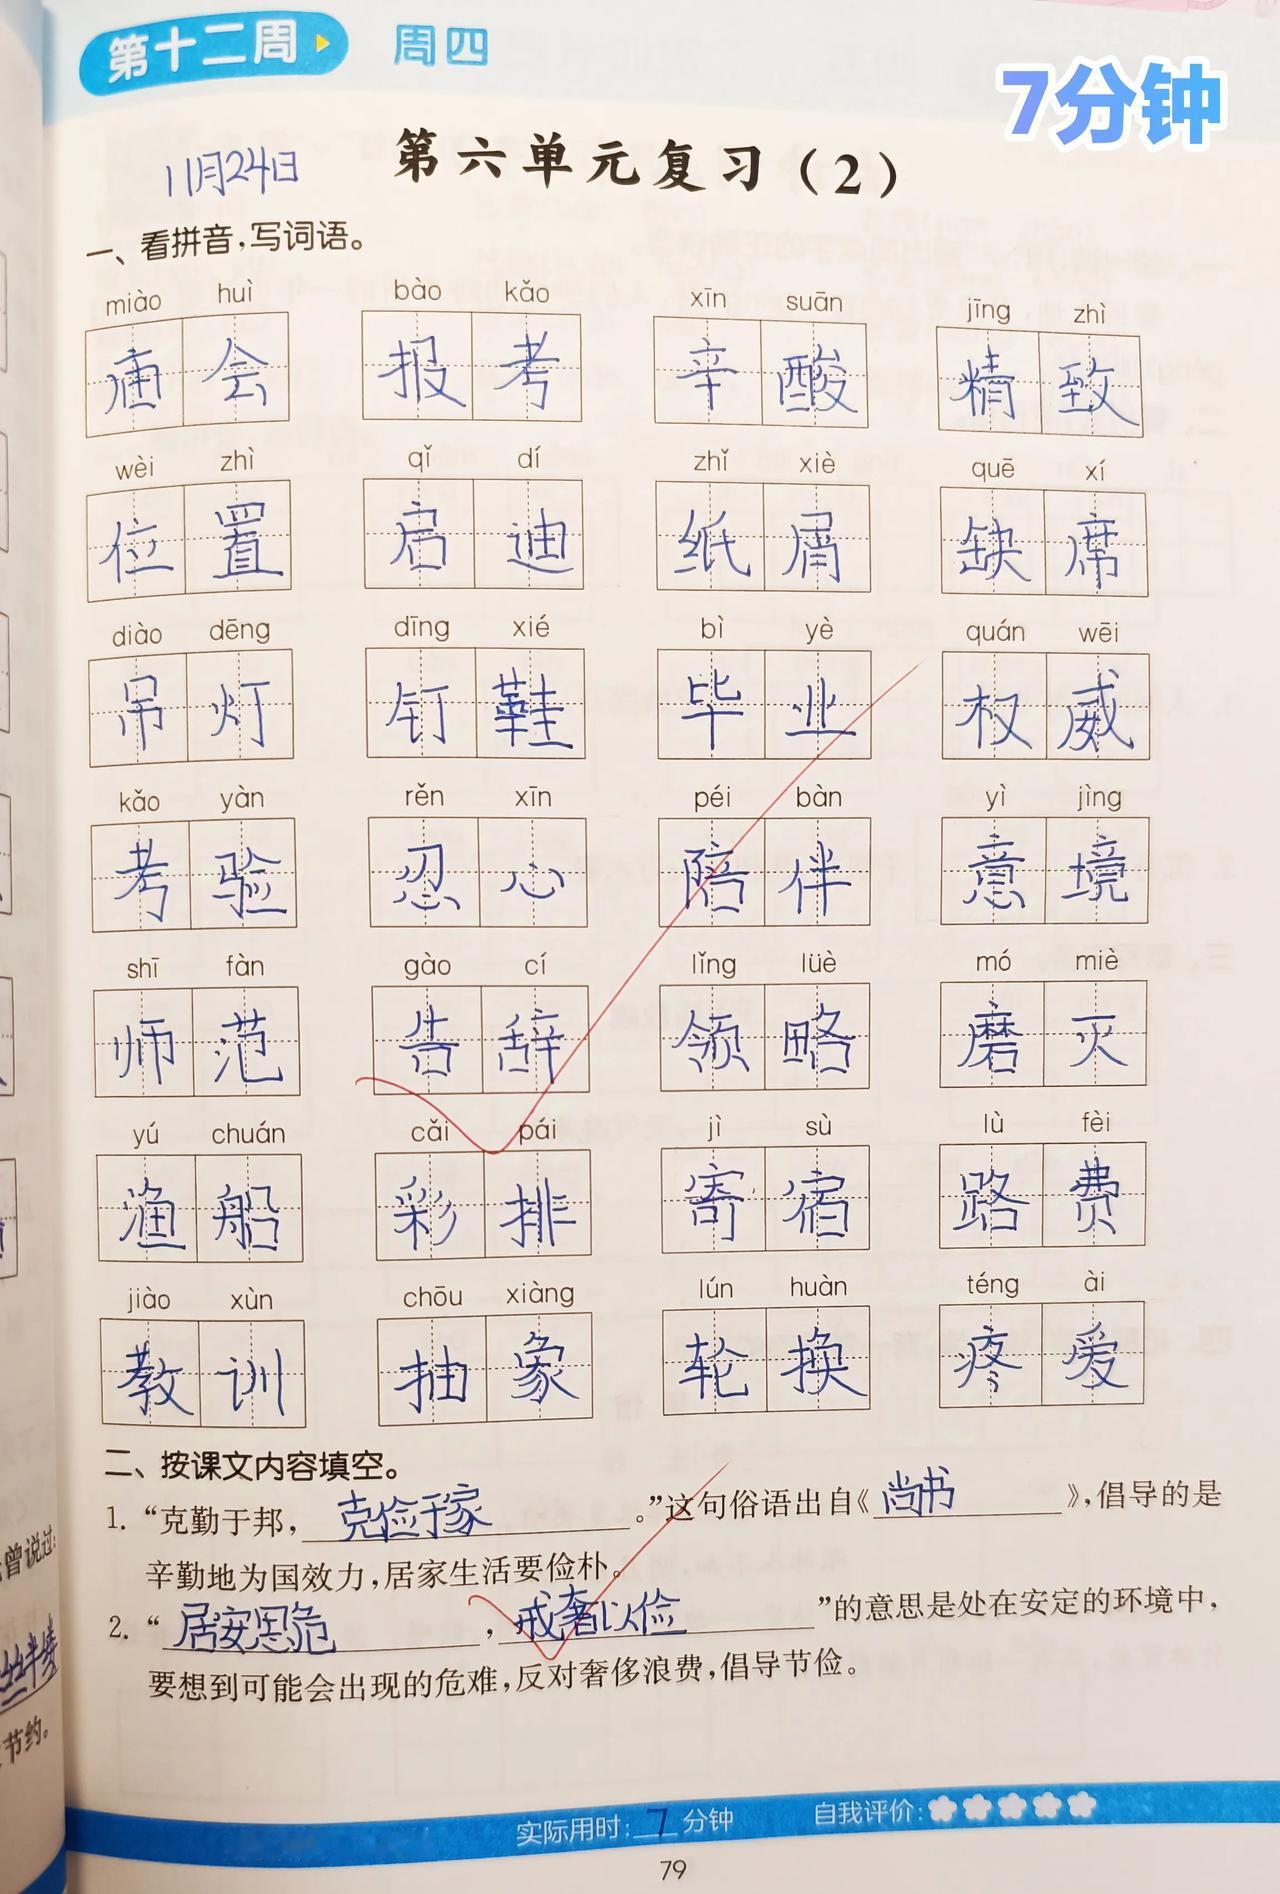 第十二周 周四
7分钟
第六单元复习（2）
11月24日
一、看拼音，写词语。
miào huì bào kǎo xīn suān jīng zhì
庙会 报考 辛酸 精致
wèi zhì qǐ dí zhǐ xiè quē xí
位置 启迪 纸屑 缺席
diào dēng dīng xié bì yè quán wēi
吊灯 钉鞋 毕业 权威
kǎo yàn rěn xīn péi bàn yì jìng
考验 忍心 陪伴 意境
shī fàn gào cí lǐng lüè mó miè
师范 告辞 领略 磨灭
yú chuán cǎi pái jì sù lù fèi
渔船 彩排 寄宿 路费
jiào xùn chōu xiàng lún huàn téng ài
教训 抽象 轮换 疼爱
二、按课文内容填空。
1. “克勤于邦，克俭于家。”这句俗语出自《尚书》，倡导的是
辛勤地为国效力，居家生活要俭朴。
2. “居安思危，戒奢以俭”的意思是处在安定的环境中，
要想到可能会出现的危难，反对奢侈浪费，倡导节俭。
曾说过：
节约。
实际用时：7分钟 自我评价：
79